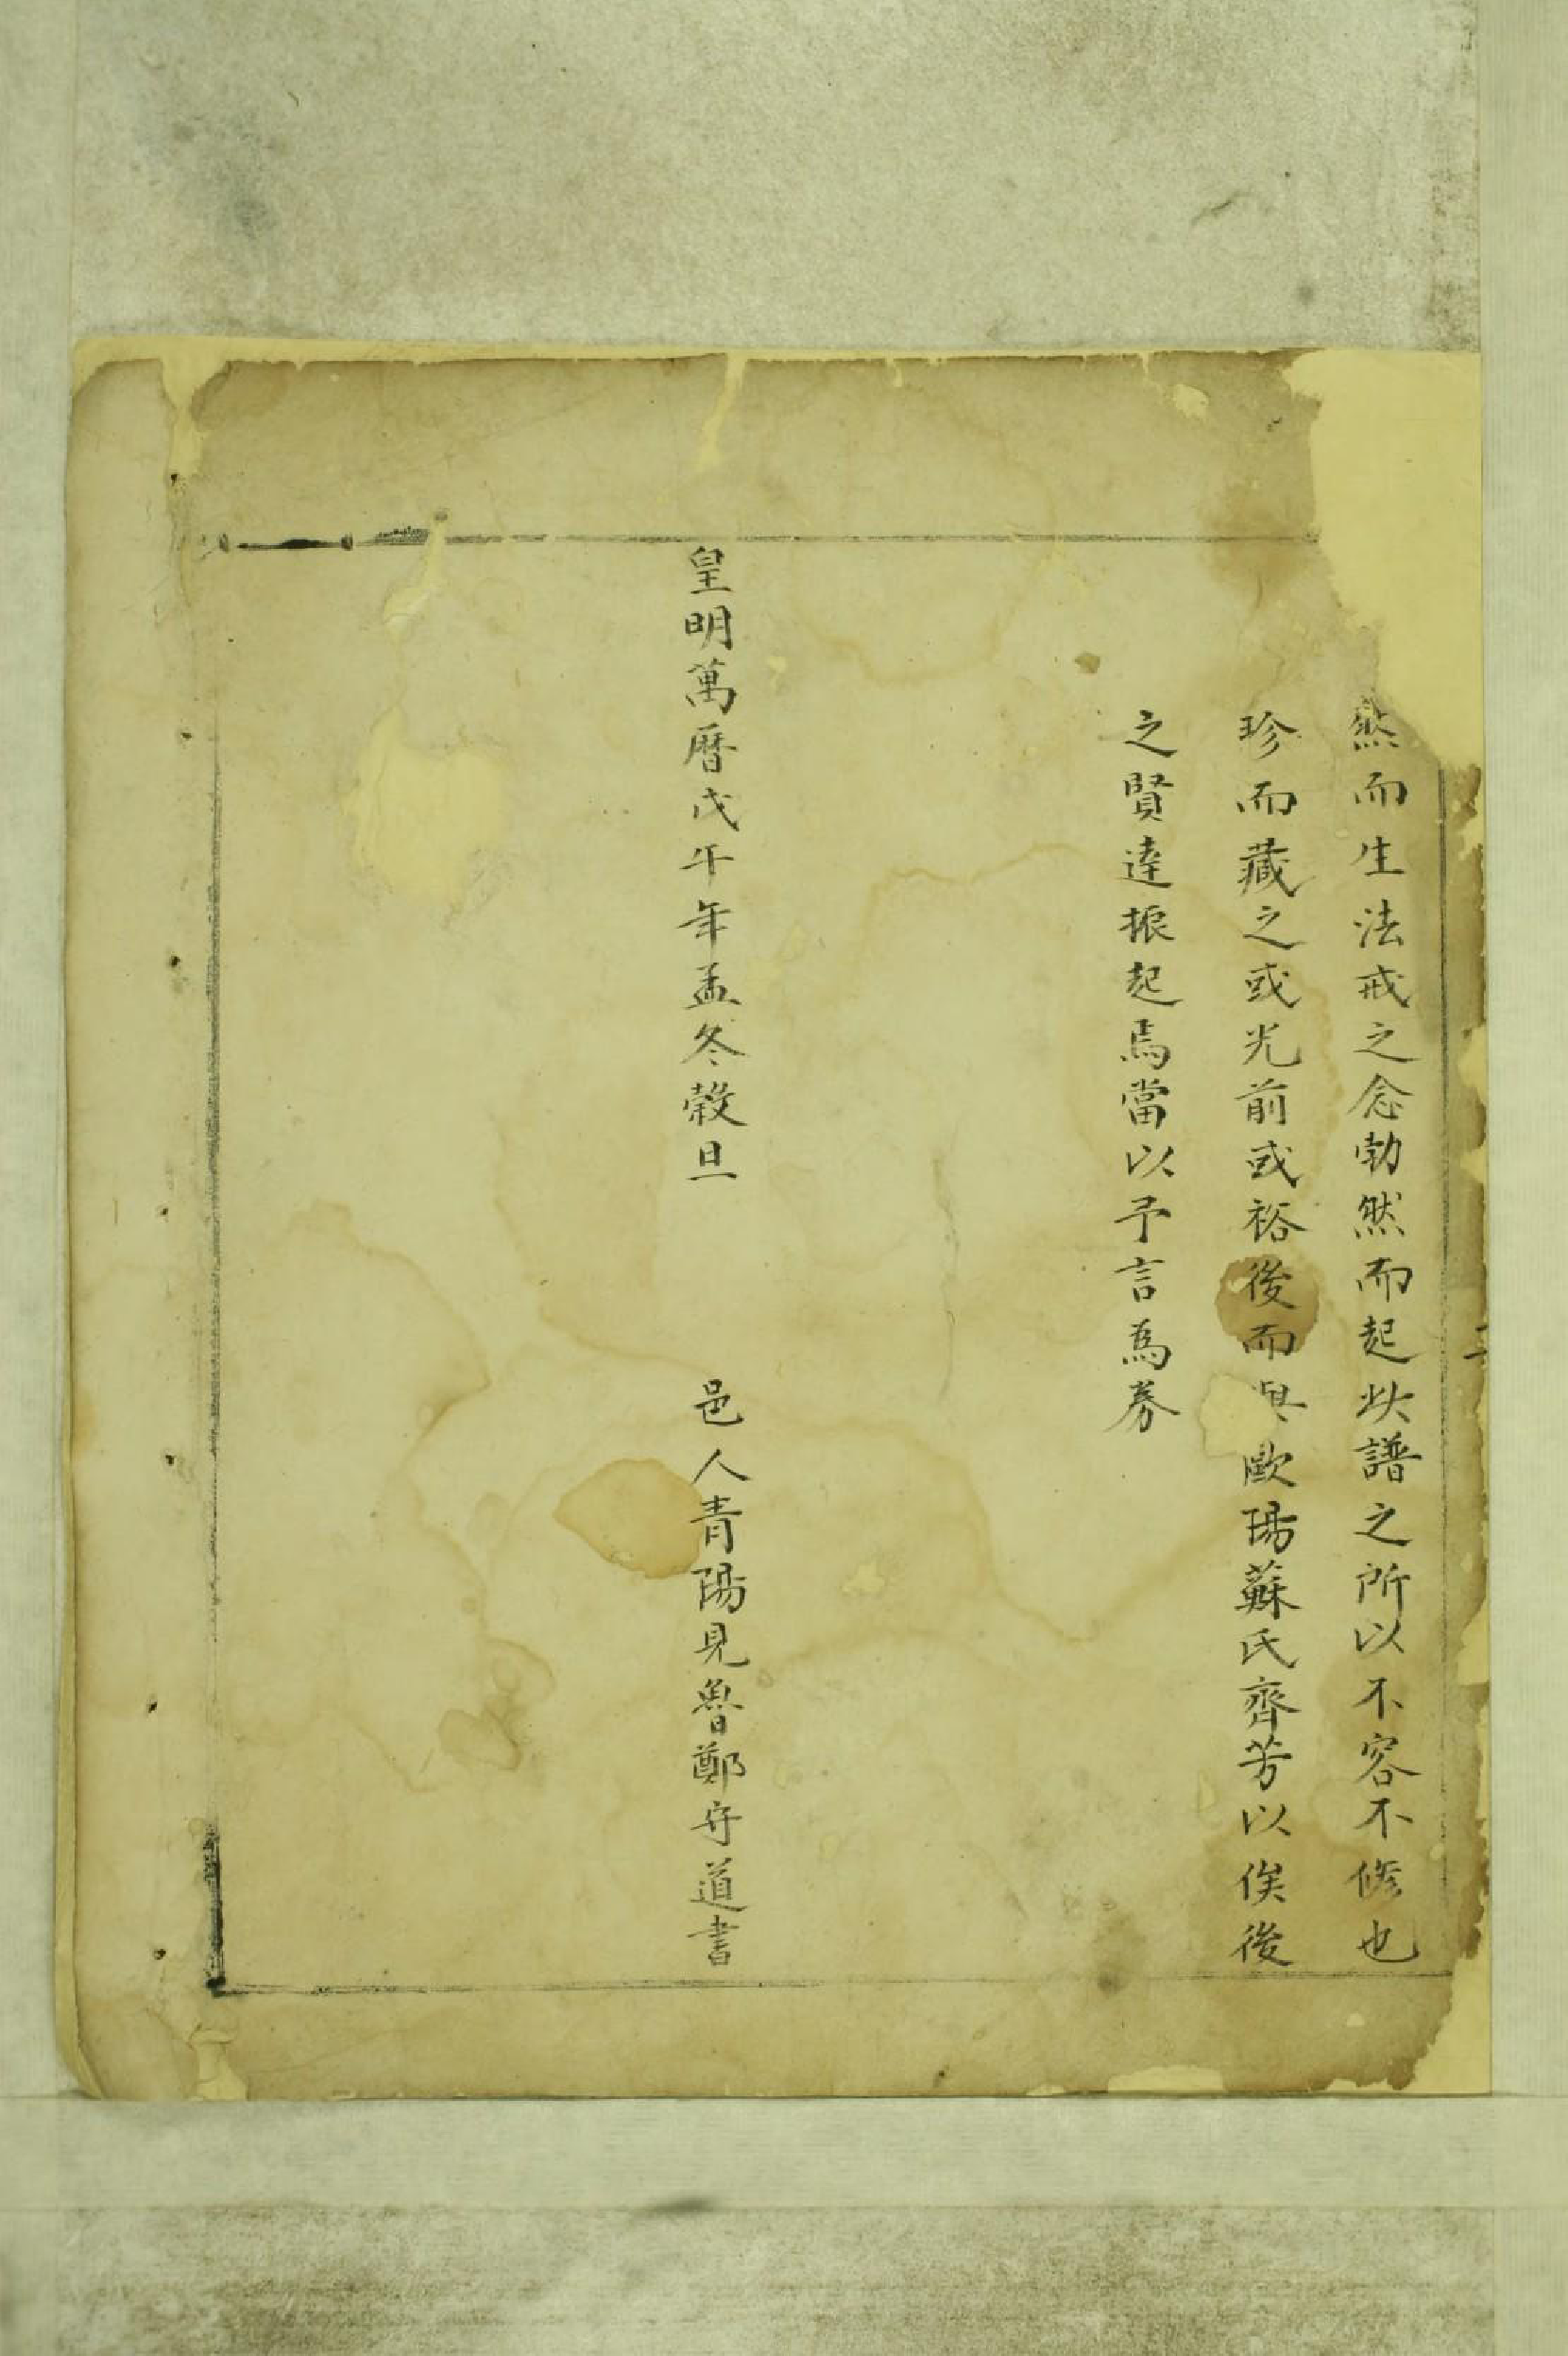 然而生法戒之念勃然而起此譜之所以不容不修也
珍而藏之或光前或裕後而與歐陽蘇氏齊芳以俟後
之賢達振起焉當以予言為券
皇明萬曆戊午年孟冬穀旦
邑人青陽見魯鄭守道書